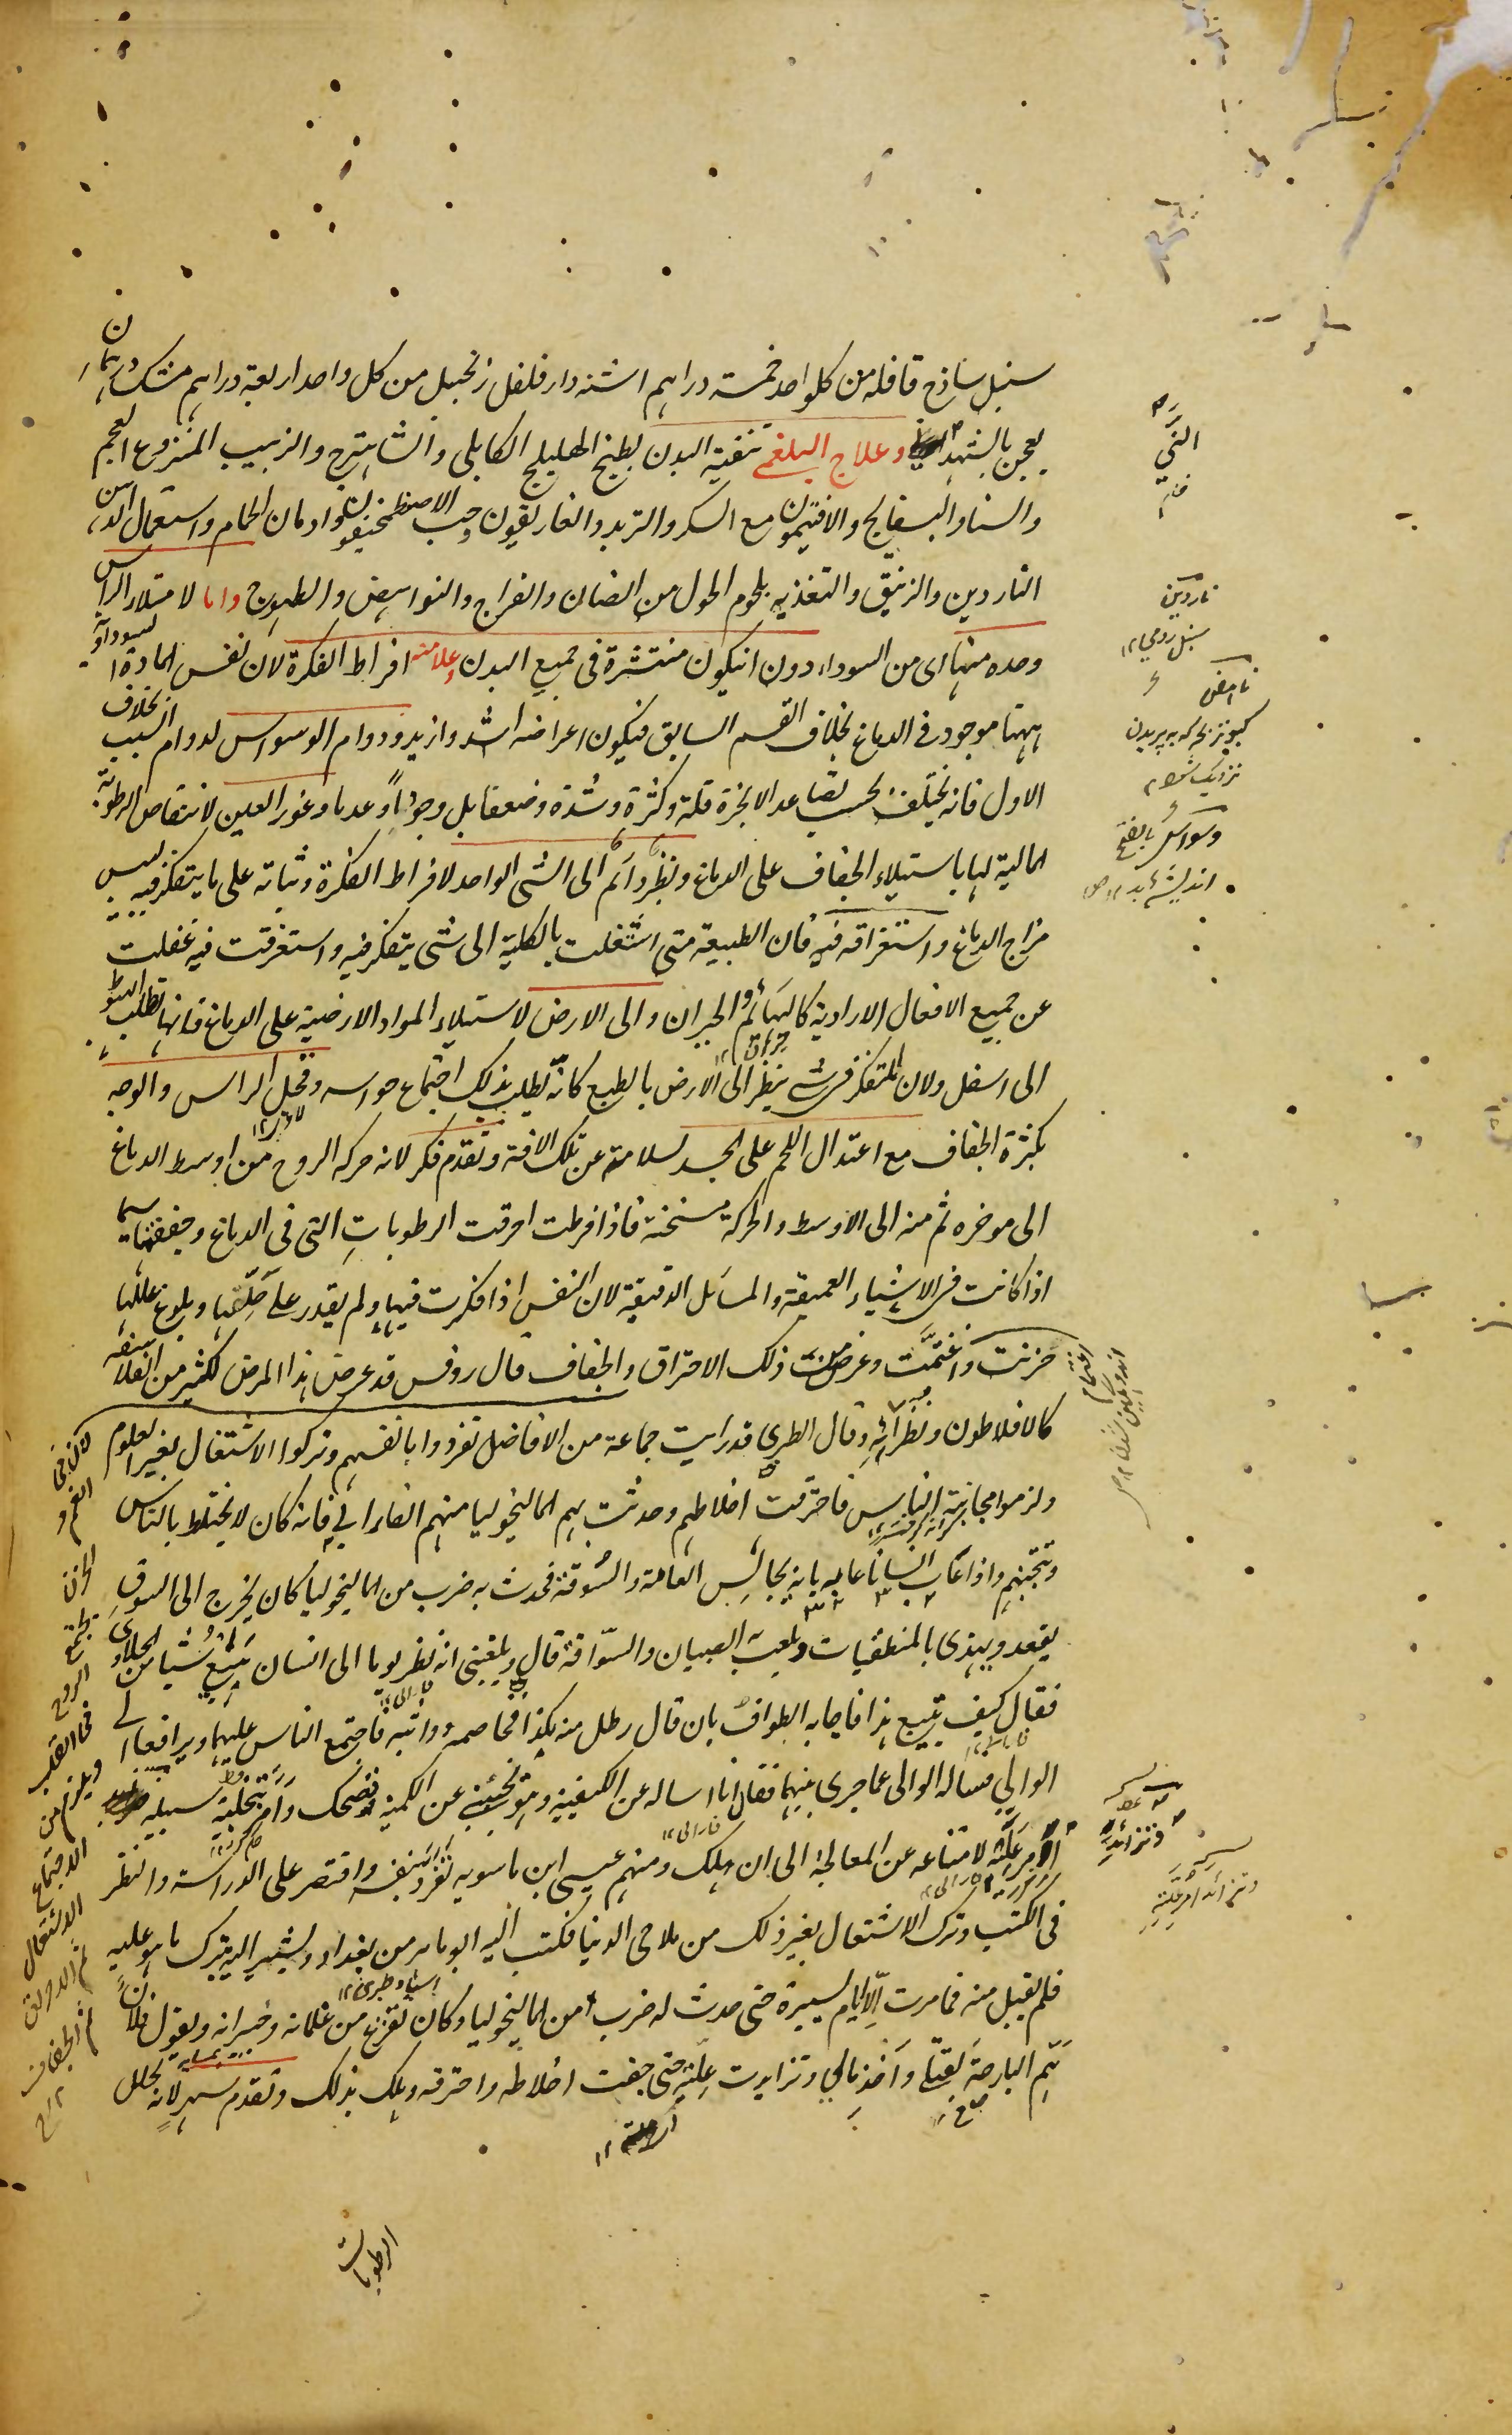 سنبل ساذج قاقله من كلواحد خمسة دراهم اشنه دارفلفل زنجبيل من كل واحد اربعة دراهم مشك درهمان
يعجن بالشهد وعلاج البلغمى تنقية البدن بطبخ الهليلج الكابلى والشاهترج والزبيب المنزوع العجم
والسنا والبسفايج والافتيمون مع السكر والتربد والغاريقون وحب الاصطمخيقون وادمان الحمام واستعمال الدهن
الناردين والزنبق والتغذيه بلحوم الحول من الضان والفراج والنواهض والطيهوج واما لامتلاء الراس
وحده منها اى من السوداء دون انيكون منتشرة فى جميع البدن وعلامته افراط الفكرة لان نفس المادة السوداوية
ههنا موجود فى الدماغ بخلاف القسم السابق فيكون اعراضه اشد وازيد ودوام الوسواس لدوام السبب بخلاف
الاول فانه يختلف بحسب تصاعد الابخرة قلة وكثرة وشدة وضعفا بل وجوداً وعدما وغور العين لانتقاص الرطوبة
المالية لها باستيلاء الجفاف على الدماغ ونظر دائم الى الشى الواحد لافراط الفكرة وثباته على ما يتفكر فيه ليبس
مزاج الدماغ واستغراقه فيه فان الطبيعة متى اشتغلت بالكلية الى شى يتفكر فيه واستغرقت فيه غفلت
عن جميع الافعال الارادية كالبهائم والحيران والى الارض لاستيلاء المواد الارضية على الدماغ فانها تطلب الهبوط
الى اسفل ولان المتفكر فى شى ينظر الى الارض بالطبع كانه يطلب بذلك اجتماع حواسه وقحل الراس والوجه
بكثرة الجفاف مع اعتدال اللحم على الجسد لسلامته عن تلك الافة وتقدم فكر لانه حركه الروح من اوسط الدماغ
الى موخره ثم منه الى الاوسط والحركة مسخنة فاذا افرطت احرقت الرطوبات التى فى الدماغ وجففتها سيما
اذا كانت فى الاشياء العميقة والمسائل الدقيقة لان النفس اذا فكرت فيها ولم يقدر على حلها وبلوغ عللها
حزنت واغتمت وعرض من ذلك الاحتراق والجفاف قال روفس قد عرض هذا المرض لكثير من الفلاسفه
كالافلاطون ونظرائه وقال الطبرى قد رايت جماعة من الافاضل تفردوا بانفسهم وتركوا الاشتغال بغير العلوم
ولزموا مجانبة الناس فاحترقت اخلاطهم وحدثت بهم الماليخوليا منهم الفارابى فانه كان لا يختلط بالناس
ويتجنبهم واذا عاب انسانا عابه بانه يجالس العامة والسوقة فحدث به ضرب من الماليخوليا كان يخرج الى السوق
يقعد ويهذى بالمنطقيات ويلعب به الصبيان والسواقة قال وبلغنى انه نظر يوما الى انسان يبيع شيئا من الحلاوى
فقال كيف تبيع هذا فاجابه الطواف بان قال رطل منه بكذا فخاصمه وواثبه فاجتمع الناس عليهما ويرافعا الى
الوالى فساله الوالى عما جرى بينهما فقال انا اساله عن الكيفية وهو يخبرنى عن الكمية فضحك وامر بتخلية سبيله
علته لامتناعه عن المعالجة الى ان هلك ومنهم عيسى ابن ماسويه تفرد بنفسه واقتصر على الدراسة والنظر
فى الكتب وترك الاشتغال بغير ذلك من ملاحى الدنيا فكتب اليه ابو ماهر من بغداد ويشير اليه بترك ما هو عليه
فلم يقبل منه فما مرت الا ايام يسيرة حتى حدث له ضرب من الماليخوليا وكان يفزع من غلمانه وجيرانه ويقول فلانا
البارحة واخذ مالى وتزايدت علته حتى جفت اخلاطه واحترقه وهلك بذلك وتقدم سهر لانه يحلل
الرطوبات
ناردين
سنبل رومى ١٢
ناهض
كبوتر بچه كه به پريدن
نزديك
وسواس بالفتح
انديشه بد ١٢ ص
الغم و
الحزن
يجتمع
الروح
القلب
ويلزم من
الاجتماع
الاشتعال
ثم الاحراق
ثم الجفاف